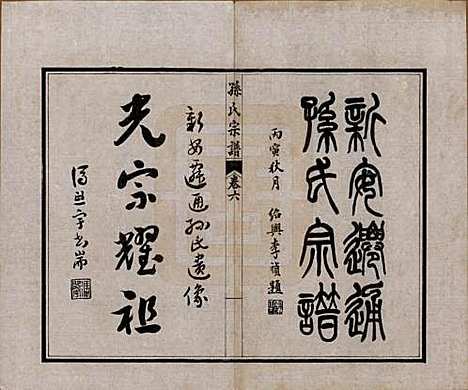 新安遷通
孫氏宗譜
丙寅秋月
紹興李禎題
孫氏宗譜
卷六
新安遷通孫氏遺像
光宗耀祖